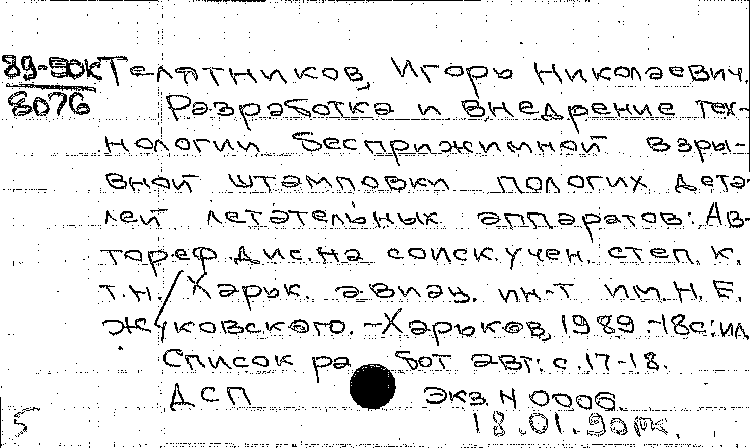 89-50к Телятников, Игорь Николаевич.
8076 Разработка и внедрение тех-
нологии бесприжимной взры-
вной штамповки пологих дета-
лей летательных аппаратов: Ав-
тореф. дис. на соиск. учен. степ. к.
т.н./ Харьк. авиац. ин-т им. Н. Е.
Жуковского. -Харьков, 1989.-18с:ил
Список ра бот авт: с. 17-18.
ДСП Экз. N 0006.
5 18.01.90